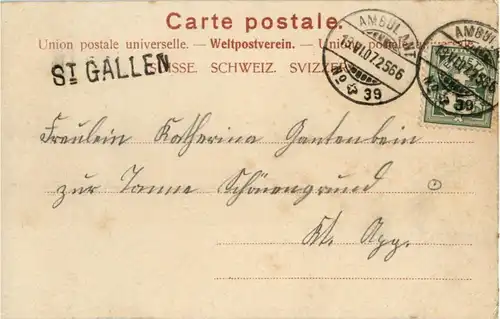 Carte postale.
Union postale universelle. — Weltpostverein. — Union postale
ST GALLEN
SUISSE. SCHWEIZ. SVIZZERA
AMBULANT
13.VI.07.2566
No 39
AMBULANT
No 39
Fräulein Katharina Gantenbein
zur Tanne Schönengrund
Kt. App.